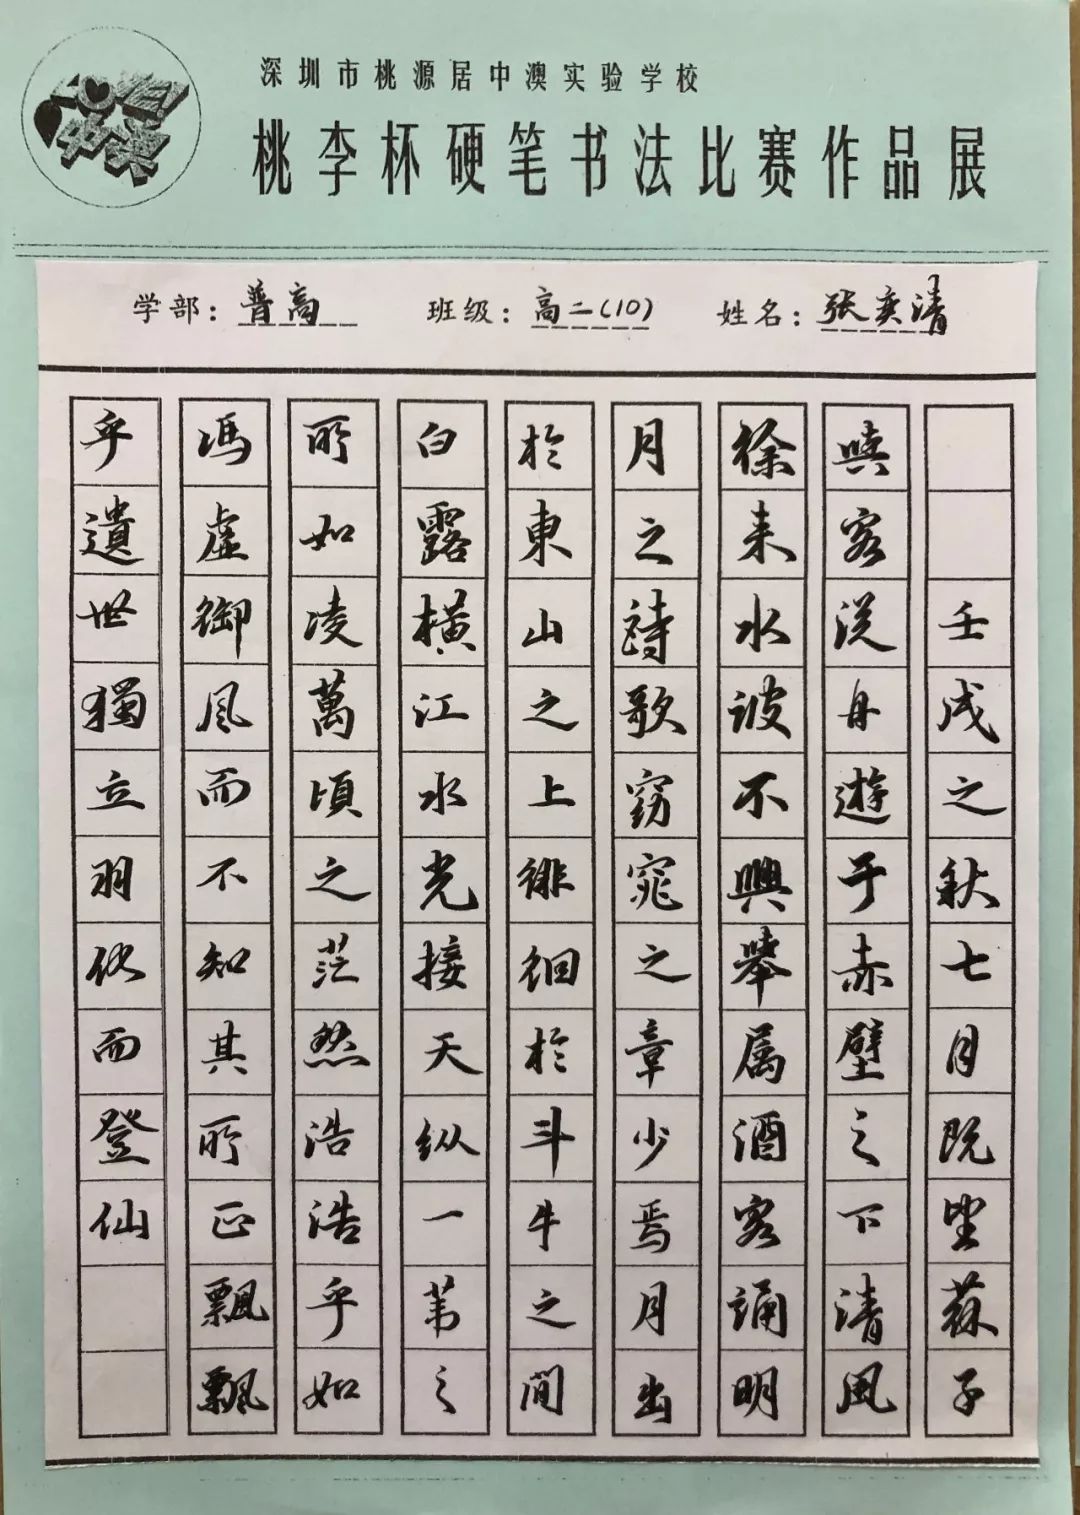 深圳市桃源居中澳实验学校
桃李杯硬笔书法比赛作品展
学部：普高 班级：高二(10) 姓名：张奕清
壬戌之秋七月既望蘇子
與客泛舟遊于赤壁之下清風
徐来水波不興舉属酒客誦明
月之詩歌窈窕之章少焉月出
於東山之上徘徊於斗牛之間
白露橫江水光接天纵一苇之
所如凌萬頃之茫然浩浩乎如
馮虛御风而不知其所止飄飄
乎遺世獨立羽化而登仙